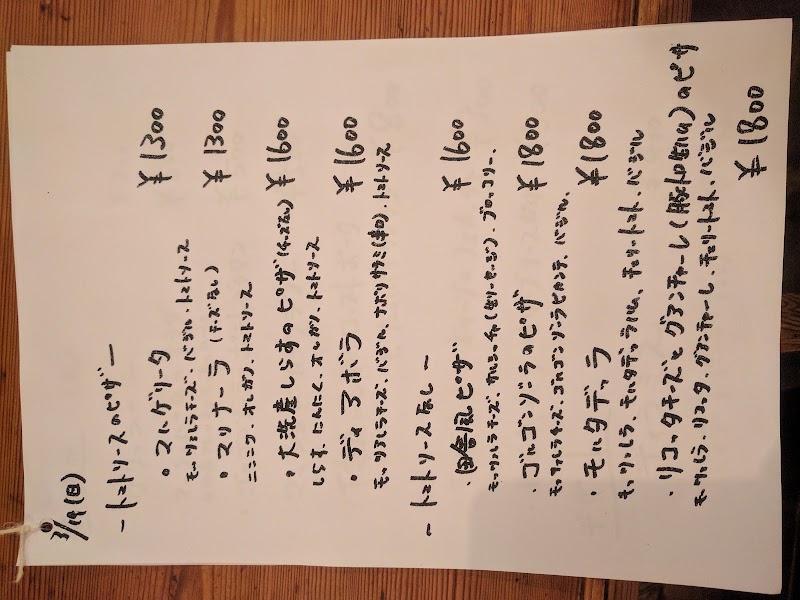 3/19(日)
ートマトソースのピザー
・マルゲリータ ¥1300
モッツァレラチーズ、バジル、トマトソース
・マリナーラ (チーズなし) ¥1300
ニンニク、オレガノ、トマトソース
・大洗産しらすのピザ(チーズなし) ¥1600
しらす、にんにく、オレガノ、トマトソース
・ディアボラ ¥1600
モッツァレラチーズ、バジル、ナポリサラミ(辛口)、トマトソース
ートマトソースなしー
・田舎風ピザ ¥1600
モッツァレラチーズ、サルシッチャ(生ソーセージ)、ブロッコリー、
・ゴルゴンゾーラのピザ ¥1800
モッツァレラチーズ、ゴルゴンゾーラピカンテ、バジル、
・モルタデッラ ¥1800
モッツァレラ、モルタデッラハム、チェリートマト、バジル
・リコッタチーズとグアンチャーレ(豚ホホ肉ハム)のピザ
モッツァレラ、リコッタ、グアンチャーレ、チェリートマト、バジル
¥1800